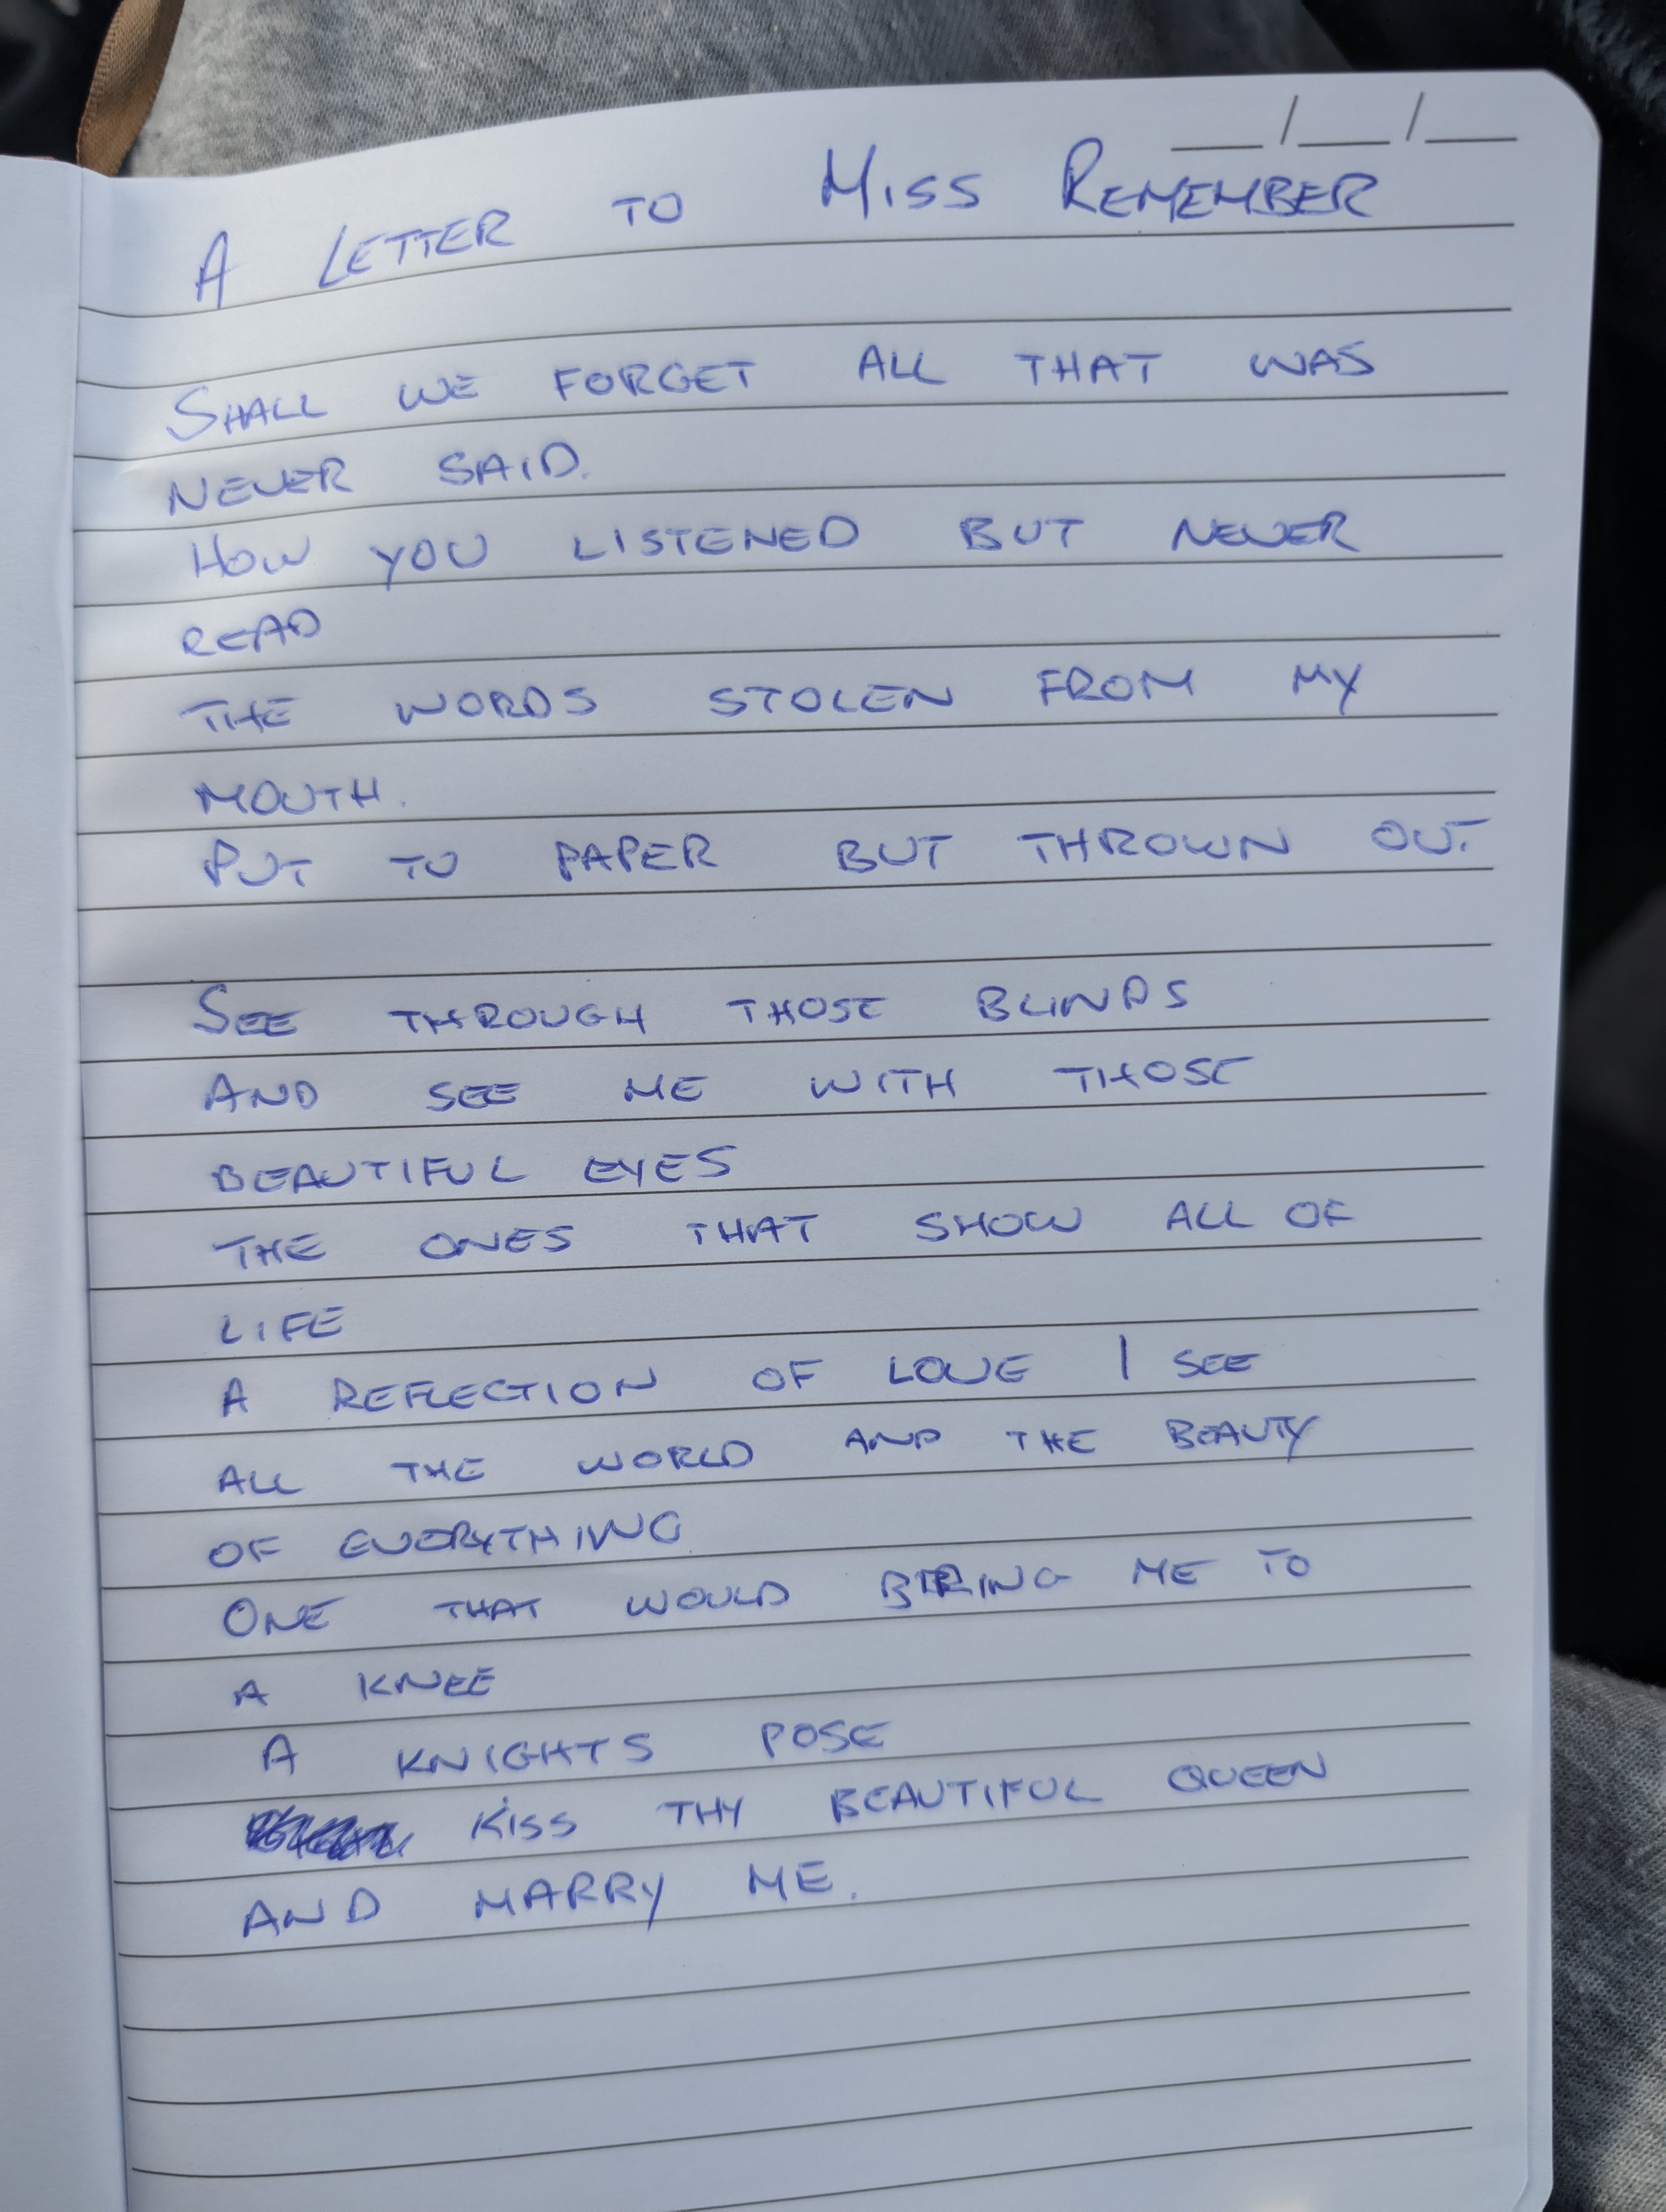 __/__/__
A LETTER TO MISS REMEMBER
SHALL WE FORGET ALL THAT WAS
NEVER SAID.
HOW YOU LISTENED BUT NEVER
READ
THE WORDS STOLEN FROM MY
MOUTH.
PUT TO PAPER BUT THROWN OUT
SEE THROUGH THOSE BLINDS
AND SEE ME WITH THOSE
BEAUTIFUL EYES
THE ONES THAT SHOW ALL OF
LIFE
A REFLECTION OF LOVE I SEE
ALL THE WORLD AND THE BEAUTY
OF EVERYTHING
ONE THAT WOULD BRING ME TO
A KNEE
A KNIGHTS POSE
KISS THY BEAUTIFUL QUEEN
AND MARRY ME.